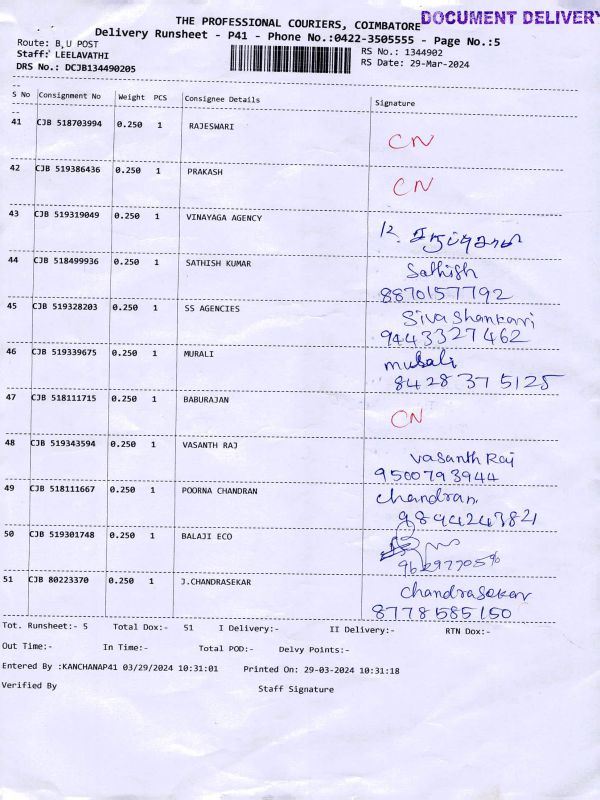 DOCUMENT DELIVERY
THE PROFESSIONAL COURIERS, COIMBATORE
Delivery Runsheet - P41 - Phone No.:0422-3505555 - Page No.:5
Route: B,U POST
RS No.: 1344902
Staff: LEELAVATHI
RS Date: 29-Mar-2024
DRS No.: DCJB134490205
S No Consignment No Weight PCS Consignee Details Signature
41 CJB 518703994 0.250 1 RAJESWARI CN
42 CJB 519386436 0.250 1 PRAKASH CN
43 CJB 519319049 0.250 1 VINAYAGA AGENCY
44 CJB 518499936 0.250 1 SATHISH KUMAR Sathish
8870157792
45 CJB 519328203 0.250 1 SS AGENCIES Siva Shankari
9443327462
46 CJB 519339675 0.250 1 MURALI murali
8428375125
47 CJB 518111715 0.250 1 BABURAJAN CN
48 CJB 519343594 0.250 1 VASANTH RAJ Vasanth Raj
9500793944
49 CJB 518111667 0.250 1 POORNA CHANDRAN Chandran
50 CJB 519301748 0.250 1 BALAJI ECO
51 CJB 80223370 0.250 1 J.CHANDRASEKAR Chandrasekar
8778585150
Tot. Runsheet:- 5 Total Dox:- 51 I Delivery:- II Delivery:- RTN Dox:-
Out Time:- In Time:- Total POD:- Delvy Points:-
Entered By :KANCHANAP41 03/29/2024 10:31:01 Printed On: 29-03-2024 10:31:18
Verified By Staff Signature